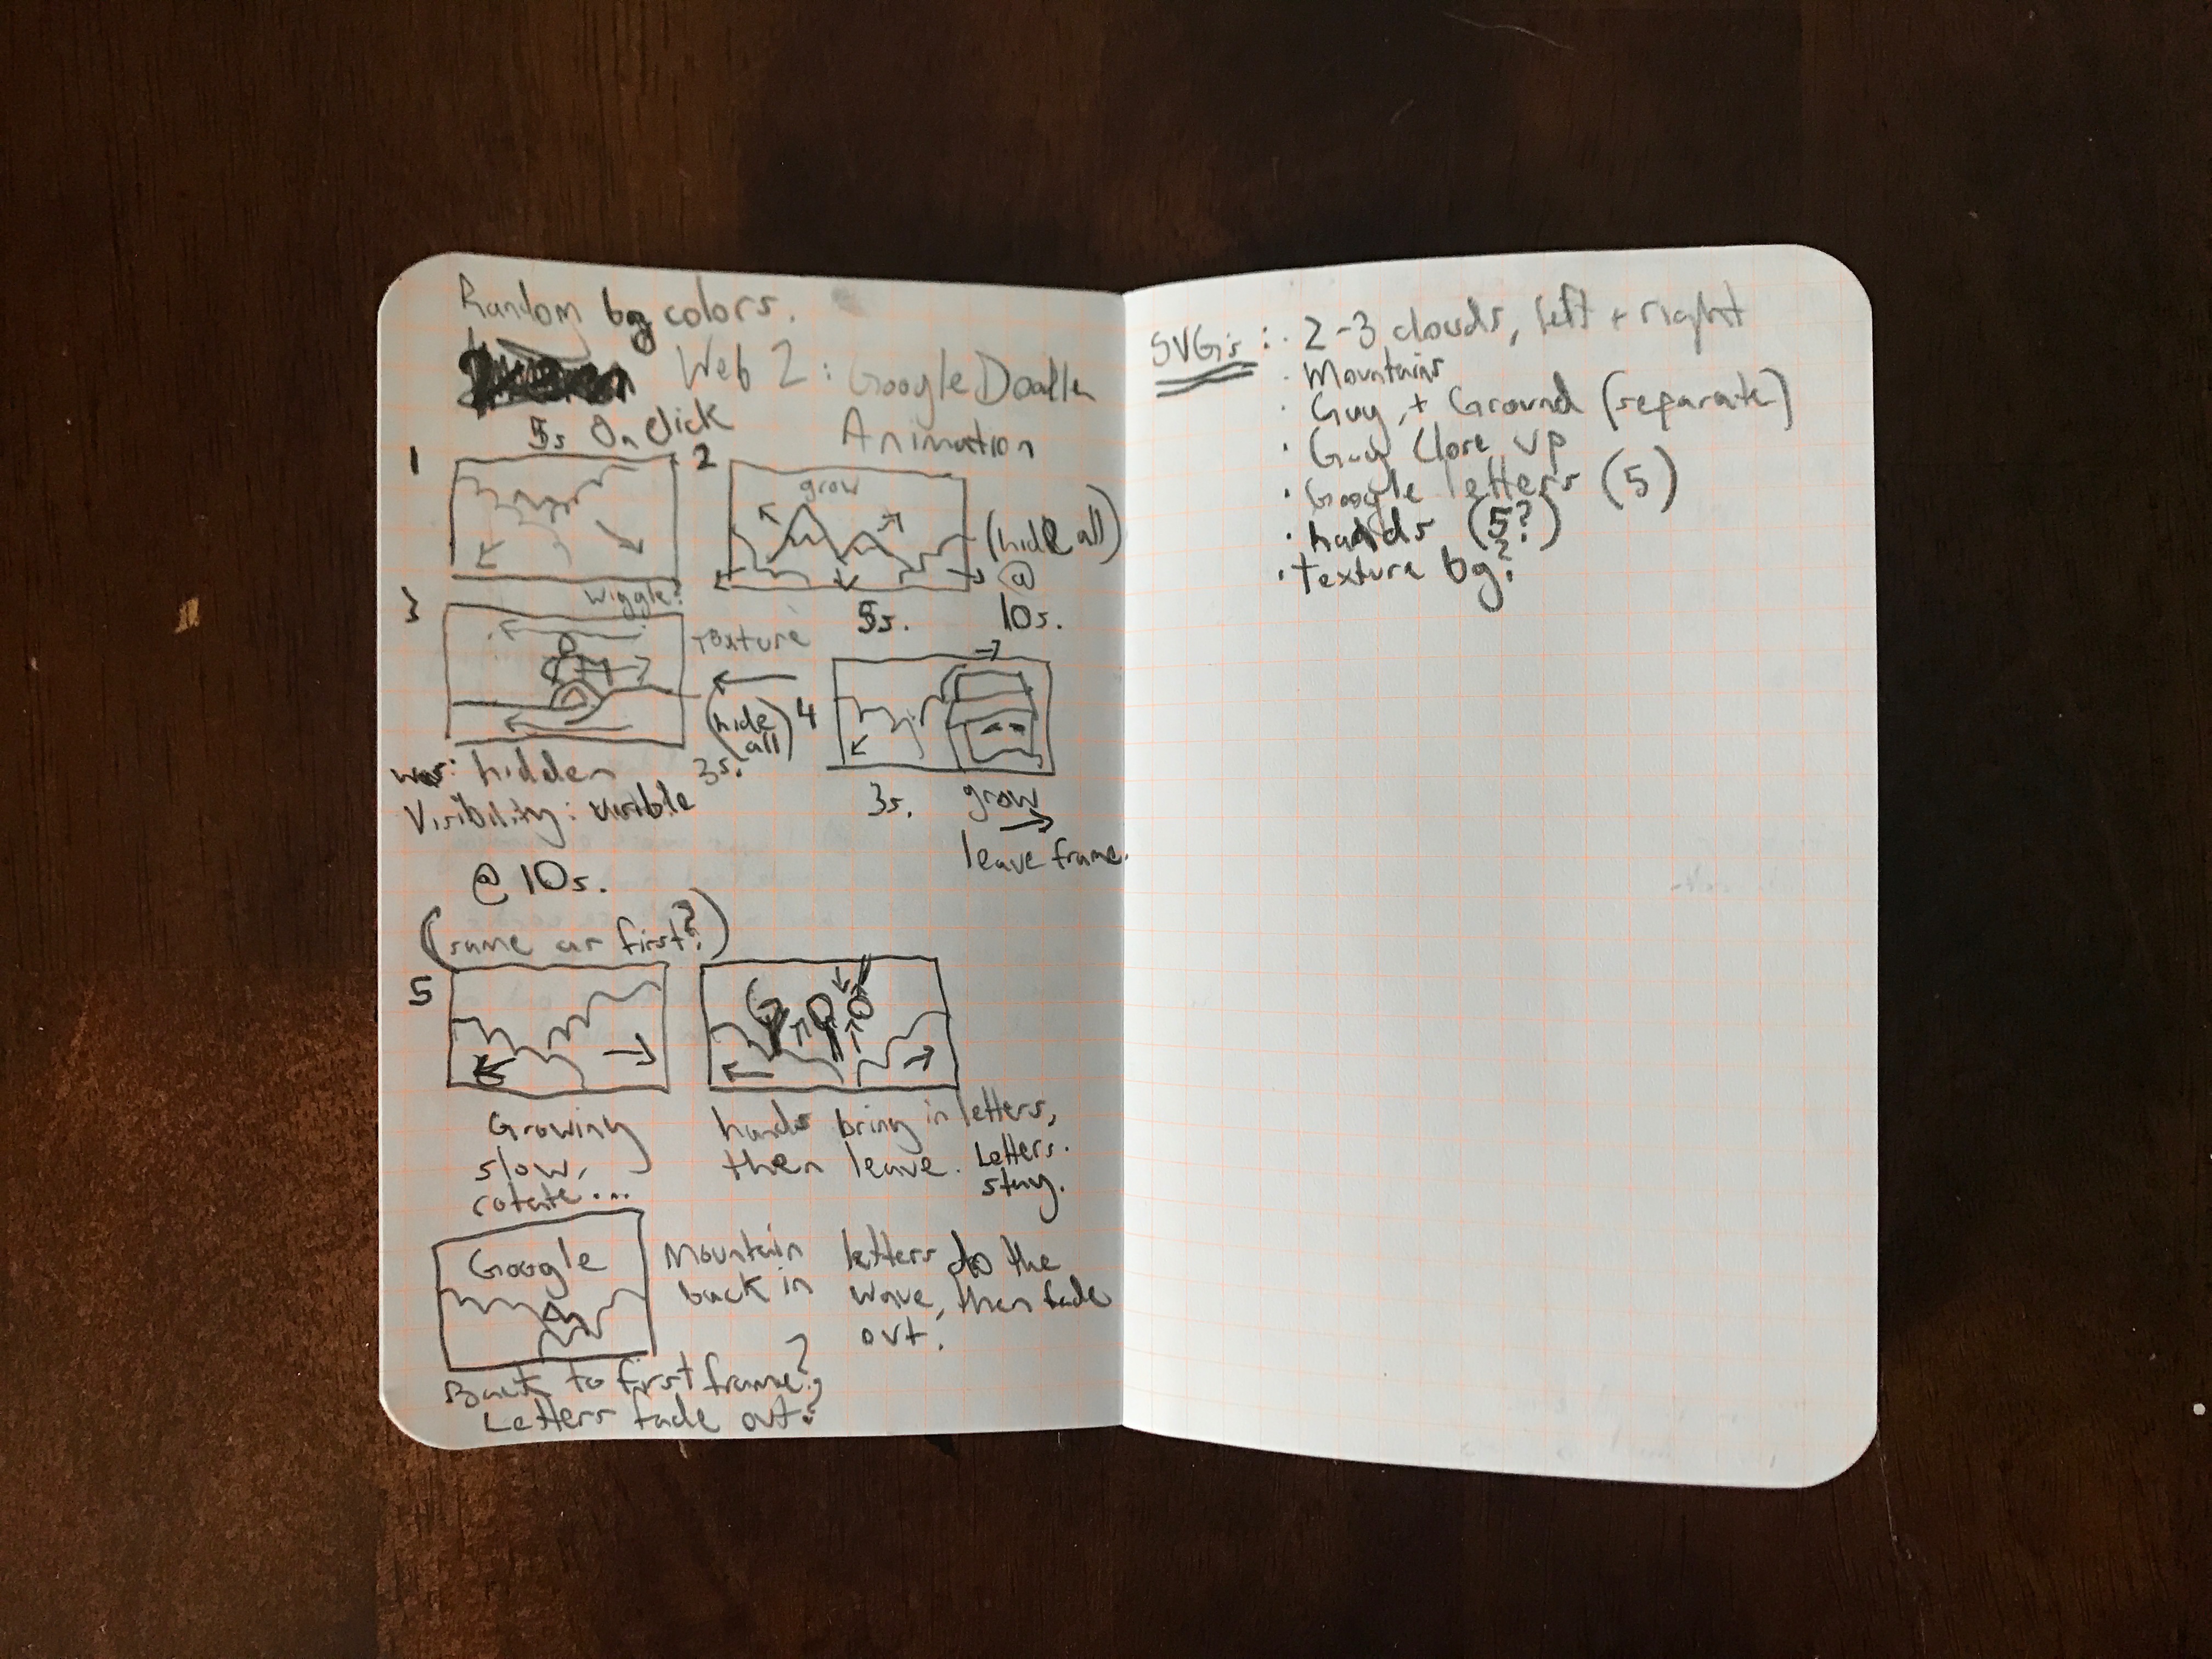 Random bg colors.
Web 2: Google Doodle
Animation
5s On Click
1
2
grow
(hide all)
@
10s.
5s.
3
wiggle?
Texture
(hide all)
3s.
4
was: hidden
Visibility: visible
@ 10s.
3s. grow
leave frame.
(same as first?)
5
G O O
Growing
slow,
rotate...
hands bring in letters,
then leave. Letters.
stay.
Google
Mountain
back in
letters do the
wave, then fade
out.
Back to first frame?
Letters fade out?
SVG's: · 2-3 clouds, left + right
· Mountains
· Guy, + Ground (separate)
· Guy Close up
· Google letters (5)
· hands (5?)
· Texture bg?